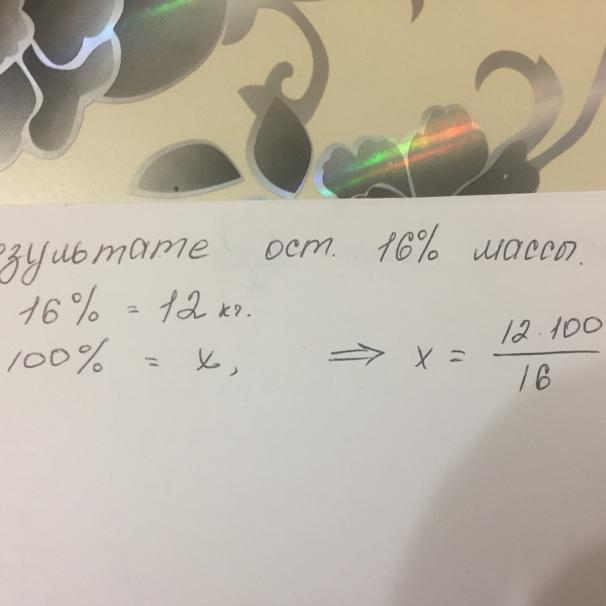 езультате ост. 16% массы.
16% = 12 кг.
100% = x, ⇒ x = 12·100/16